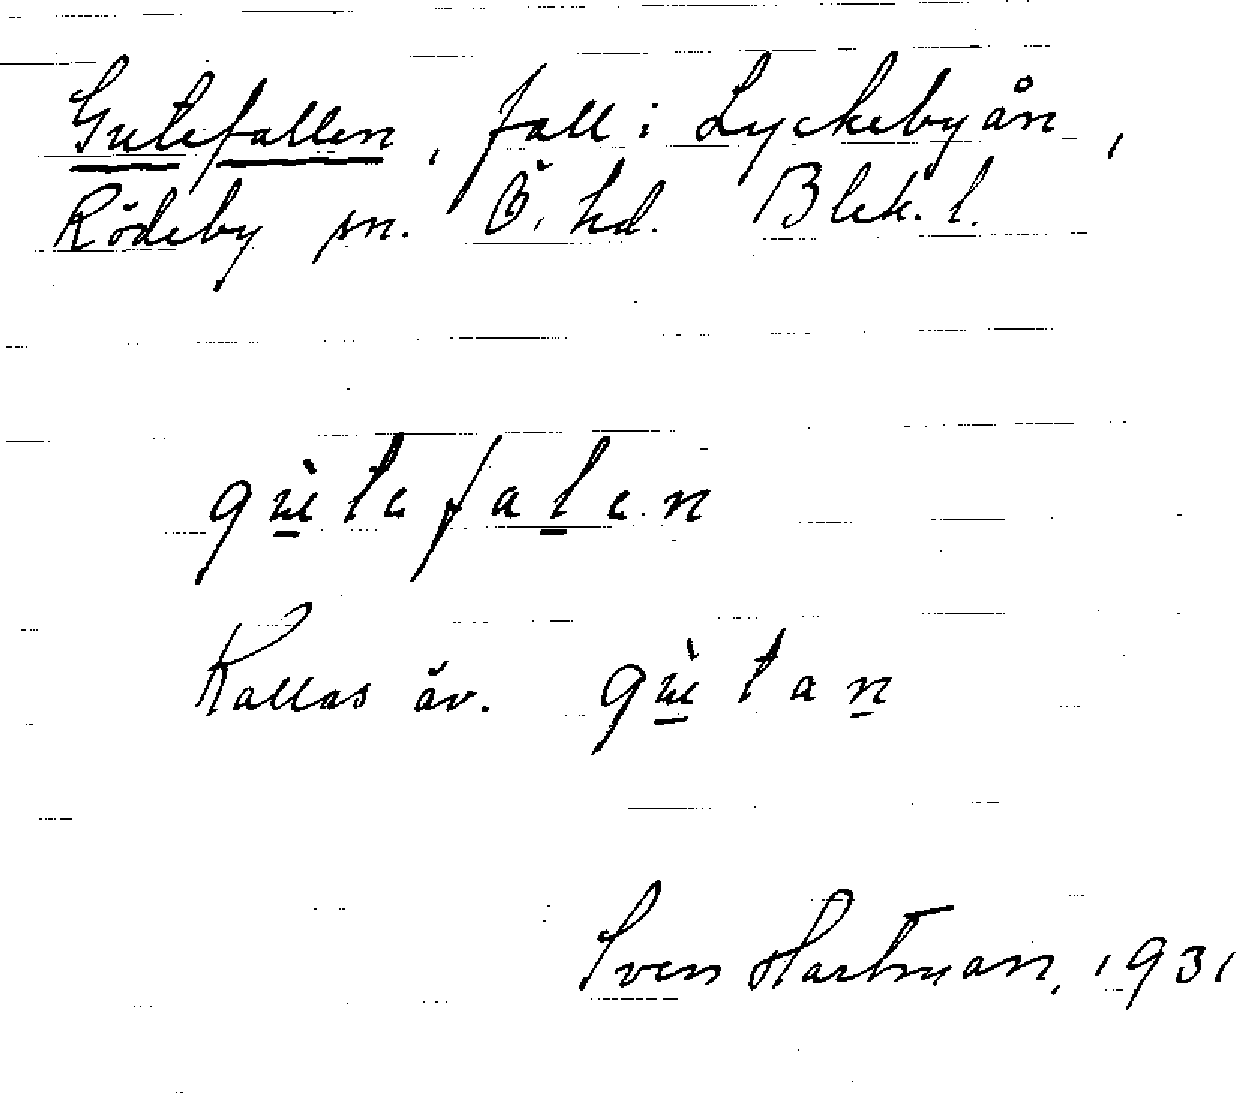 Gutefallen, fall i Lyckebyån,
Rödeby sn. Ö. hd. Blek. l.
gùtefalen
Kallas äv. gùtan
Sven Hartman, 1931